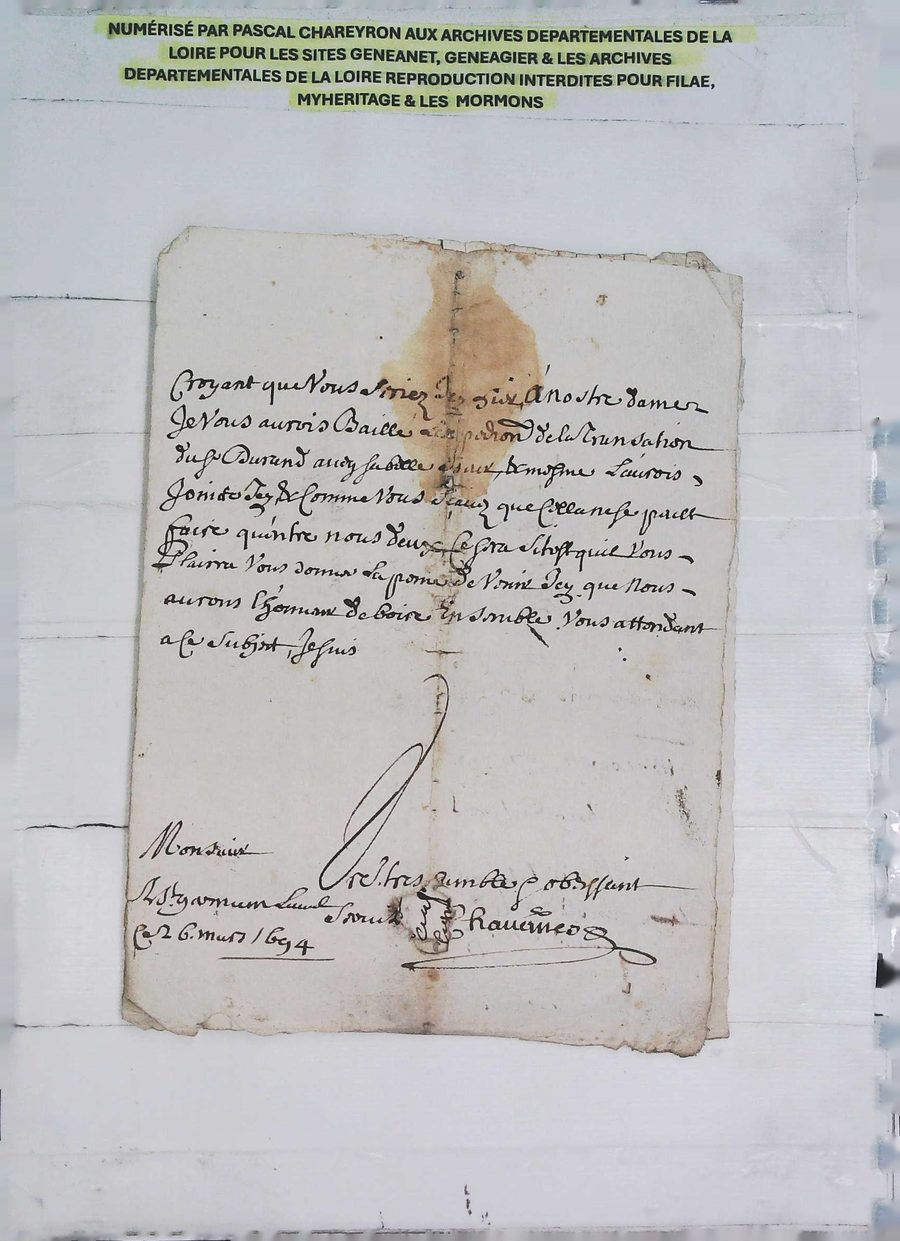 NUMÉRISÉ PAR PASCAL CHAREYRON AUX ARCHIVES DEPARTEMENTALES DE LA
LOIRE POUR LES SITES GENEANET, GENEAGIER & LES ARCHIVES
DEPARTEMENTALES DE LA LOIRE REPRODUCTION INTERDITES POUR FILAE,
MYHERITAGE & LES MORMONS
Croyant que Vous seriez Icy A nostre dame
Je Vous aurois Baillé de la Transation
du Sr Durand & mesme L'aurois
Joint Icy & Comme Vous que Cella ne se peult
faire qu'entre nous deux Ce sera Sitost quil Vous
Plairra Vous donner La pene de Venir Icy que nous
aurons l'honneur de boire Ensemble Vous attendant
a Ce Subject, Je suis
Monsieur
Vre tres humble & obeissant
A St germain Laval Serviteur
Ce 26 mars 1694